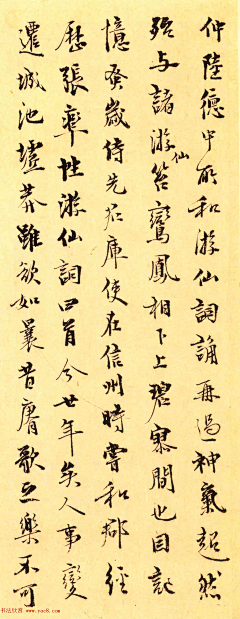 仲陸德中所和游仙詞誦再過神氣超然
殆与諸游仙笞鸞鳳相下上碧寥間也因記
憶蚤歲侍先君庫使在信州時嘗和郝經
歷張率性游仙詞四首今廿年矣人事變
遷城池墟莽雖欲如曩昔賡歌之樂不可